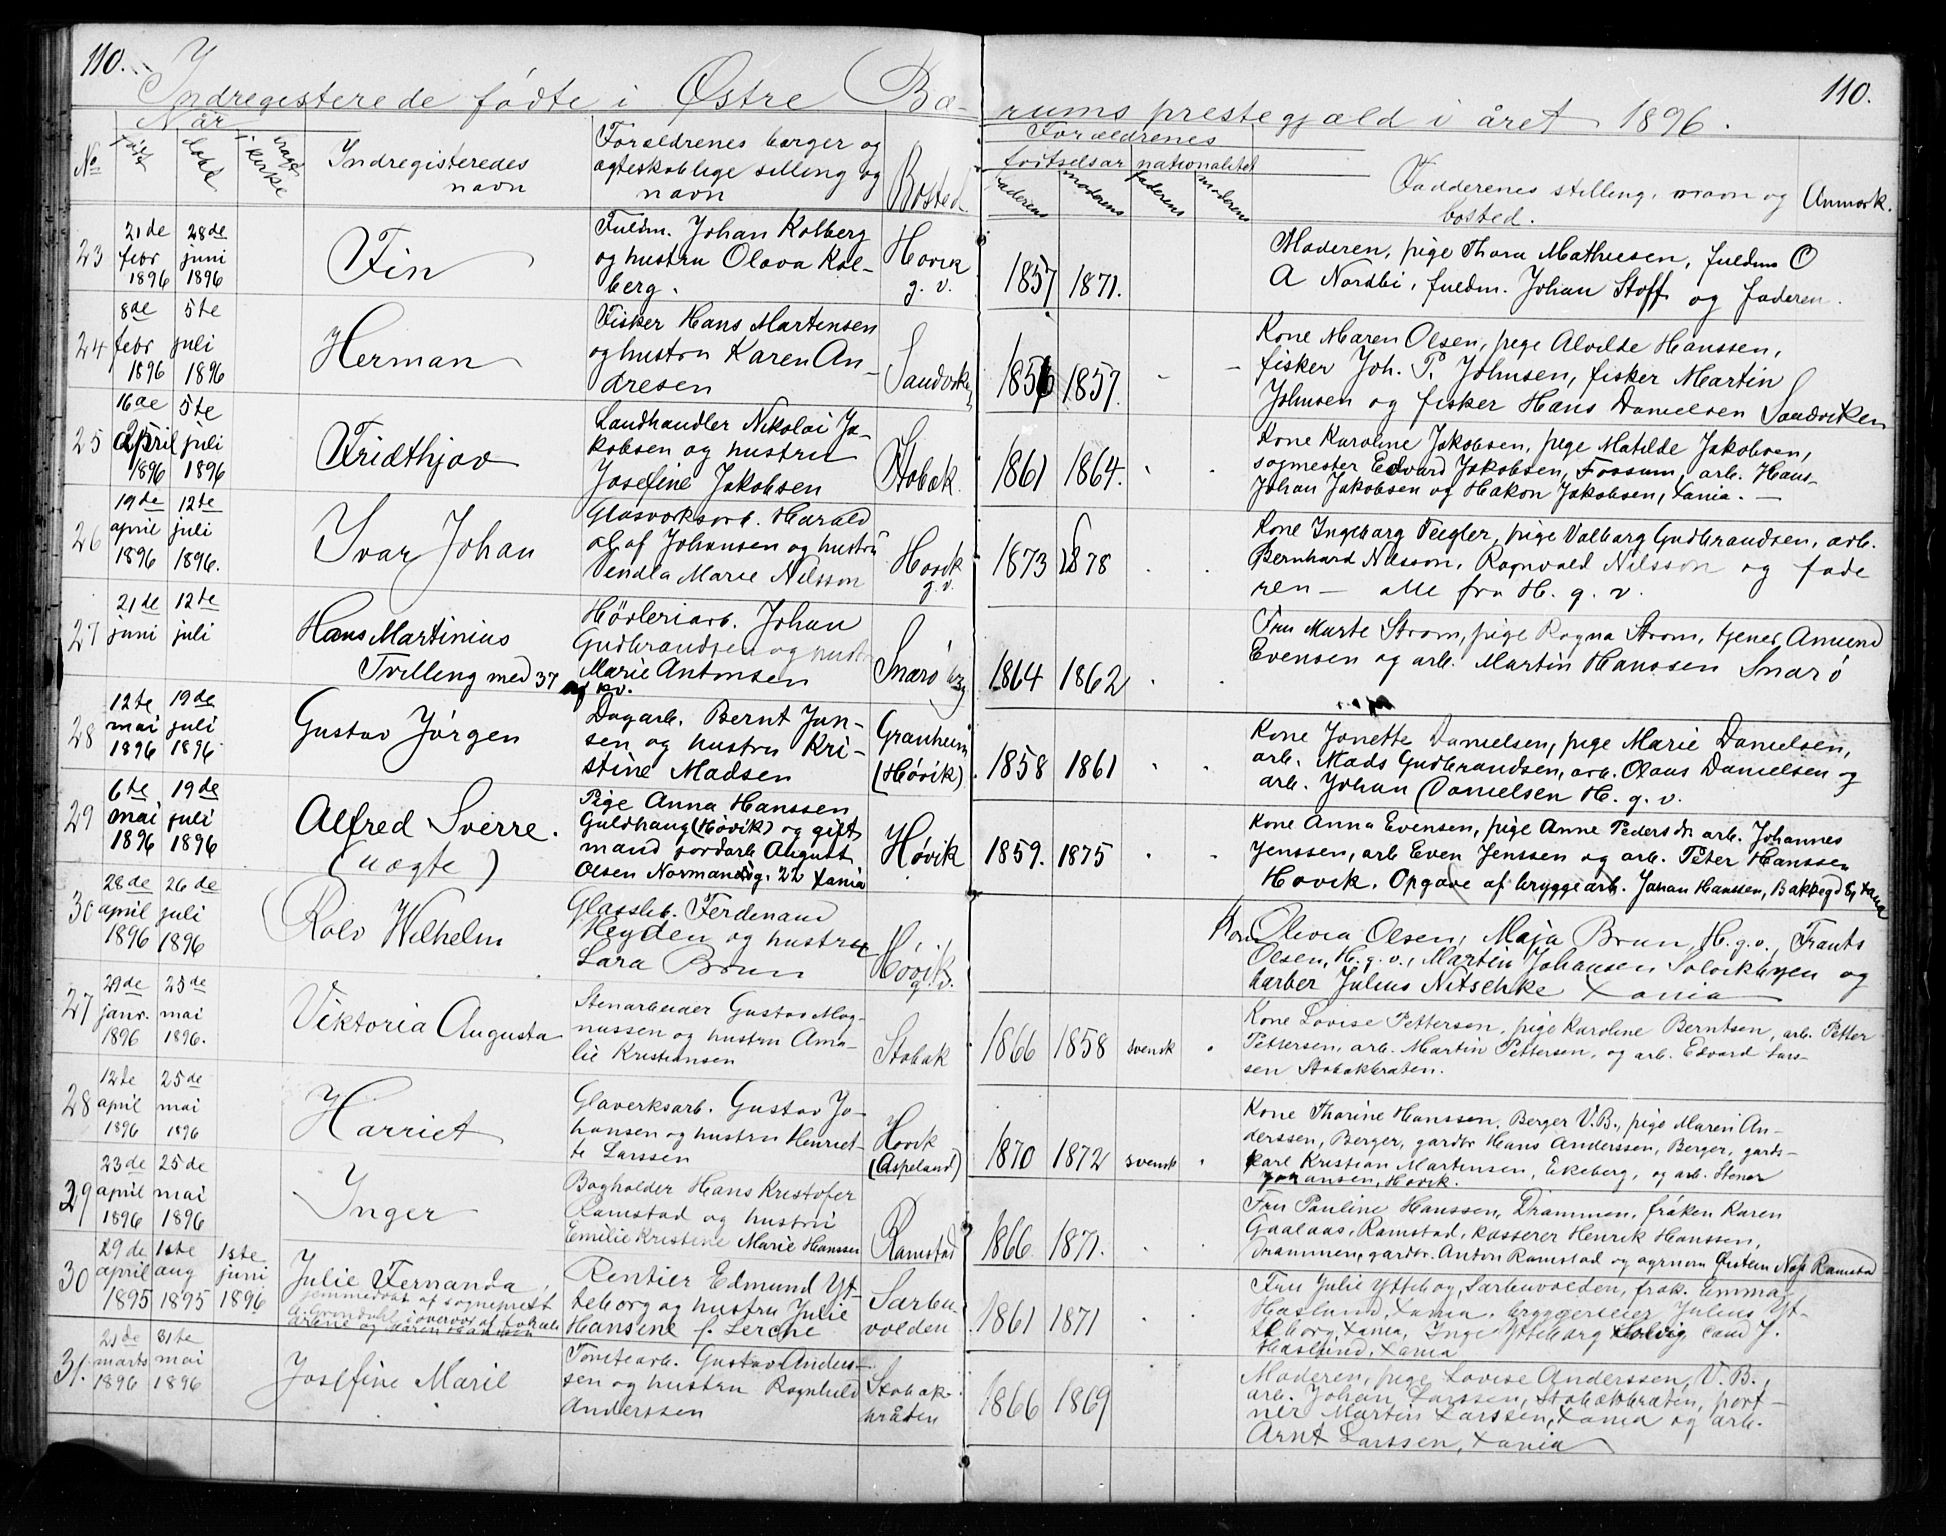 110.
110.
Indregisterede födte i Östre Bæ-
rums prestegjæld i året 1896.
No
När
född
döbt
i kirke
Indregisteredes
navn
Foraldrenes borger og
ægteskablige stilling og
navn
Bosted
Forældrenes
födselsår
nationalitet
faderens
moderens
faderens
moderens
Fadderenes stilling, navn og
bosted.
Anmerk.
23
21de
febr
1896
28de
juni
1896
Fin
Fuldm. Johan Kolberg
og hustru Olava Kol-
berg.
Hövik
g. v.
1857
1871.
Moderen, pige Thora Mathiesen, fuldm O
A Nordbi, fuldm. Johan Stoff og faderen.
24
8de
febr
1896
5te
juli
1896
Herman
Fisker Hans Martensen
og hustru Karen An-
dresen
Sandvik
1856
1857.
Kone Maren Olsen, pige Alvilde Hanssen,
fisker Joh. P. Johnsen, fisker Martin
Johnsen og fisker Hans Danielsen Sandviken
25
16de
april
1896
5te
juli
1896
Fridthjov
Landhandler Nikolai Ja-
kobsen og hustru
Josefine Jakobsen
Stabæk.
1861
1864.
Kone Karoline Jakobsen, pige Matilde Jakobsen,
sogmester Edvard Jakobsen, Fossum, arb. Hans
Johan Jakobsen og Hakon Jakobsen, Xania. —
26
19de
april
1896
12te
juli
1896.
Ivar Johan
Glasværksarb. Harald
Olaf Johansen og hustru
Vendla Marie Nilsson
Hovik
g. v.
1873
1878
Kone Ingeborg Tiegler, pige Valborg Gudbrandsen, arb.
Bernhard Nilsson, Ragnvald Nilsson og fade
ren — alle fra H. g. v.
27
21de
juni
12te
juli
Hans Martinius
Tvilling med 37
af kv.
Hövleriarb. Johan
Gudbrandsen og hust
Marie Antonsen
Snarö
1864
1862
Fru Marte Strom, pige Ragna Strom, tjener Amund
Evensen og arb. Martin Hanssen Snarö
28
12te
mai
1896
19de
juli
1896
Gustav Jörgen
Dagarb. Bernt Jan-
sen og hustru Kri-
stine Madsen
Granheim
(Hövik)
1858
1861
Kone Jonette Danielsen, pige Marie Danielsen,
arb. Mads Gudbrandsen, arb. Olaus Danielsen og
arb. Johan Danielsen H. g. v.
29
6te
mai
1896
19de
juli
1896
Alfred Sverre.
(uægte)
Pige Anna Hanssen
Guldhaug (Hövik) og gift
mand jordarb August
Olsen Normansg. 22 Xania
Hövik
1859.
1875
Kone Anna Evensen, pige Anne Pedersdr arb. Johannes
Jenssen, arb Even Jenssen og arb. Peter Hanssen
Hovik. Opgave af bryggearb. Johan Hanssen, Bakkegd 8, Xania
30
28de
april
1896
26de
juli
1896
Rolv Wilhelm
Glassleb. Ferdenand
Heyden og hustru
Lara Brun
Hövik
g. v.
Kone Olivia Olsen, Maja Brun, H. g. v., Frants
Olsen, H. g. v., Martin Johansen Solvikbyen og
barber Julius Nitschke Xania
27
29de
janr.
1896
25de
mai
1896.
Viktoria Augusta
Stenarbeider Gustav Mag-
nussen og hustru Ama-
lie Kristiansen
Stabak
1866
1858
svensk
Kone Lovise Pettersen, pige Karoline Berntsen, arb. Petter
Pettersen, arb. Martin Pettersen, og arb. Edvard Lars-
sen Stabakbraten.
28
12te
april
1896
25de
mai
1896
Harriet
Glaverksarb. Gustav Jo-
hansen og hustru Henriet-
te Larssen
Hovik
(Aspeland)
1870
1872
svensk
Kone Thorine Hanssen, Berger V.B., pige Maren An-
derssen, Berger, gardbr Hans Anderssen, Berger, gards-
karl Kristian Martensen, Ekeberg, og arb. Stener
Johansen, Hovik.
29
23de
april
1896
25de
mai
1896
Inger
Bogholder Hans Kristofer
Ramstad og hustru
Emilie Kristine Marie Hanssen
Ramstad
1866
1871.
Fru Pauline Hanssen, Drammen, fröken Karen
Gaalaas, Ramstad, kasserer Henrik Hanssen,
Drammen, gardbr. Anton Ramstad og agronom Oistein Næss Ramstad
30
29de
april
1895
1ste
aug
1895
1ste
juni
1896
Julie Fernanda
hjemmedöbt af sogneprest
A. Gröndahl i overvær af
Rentier Edmund Yt-
teborg og hustru Julie
Hansene f. Lerche
Sarbu-
volden
1861
1871
Fru Julie Ytteborg, Sarbuvolden, frök. Emma
Haslund, Xania, bryggerieier Julius Yt-
teborg, Xania, Inge Ytteborg Solvig cand J.
Haslund, Xania
31.
21de
marts
1896
31te
mai
1896
Josefine Marie
Tomtearb. Gustav Anders-
sen og hustru Ragnhild
Anderssen
Stabak-
bråten
1866
1869
Moderen, pige Lovise Anderssen, V. B.,
arb. Johan Larssen, Stabakbraten, port-
ner Martin Larssen, Xania og arb.
Arnt Larssen, Xania